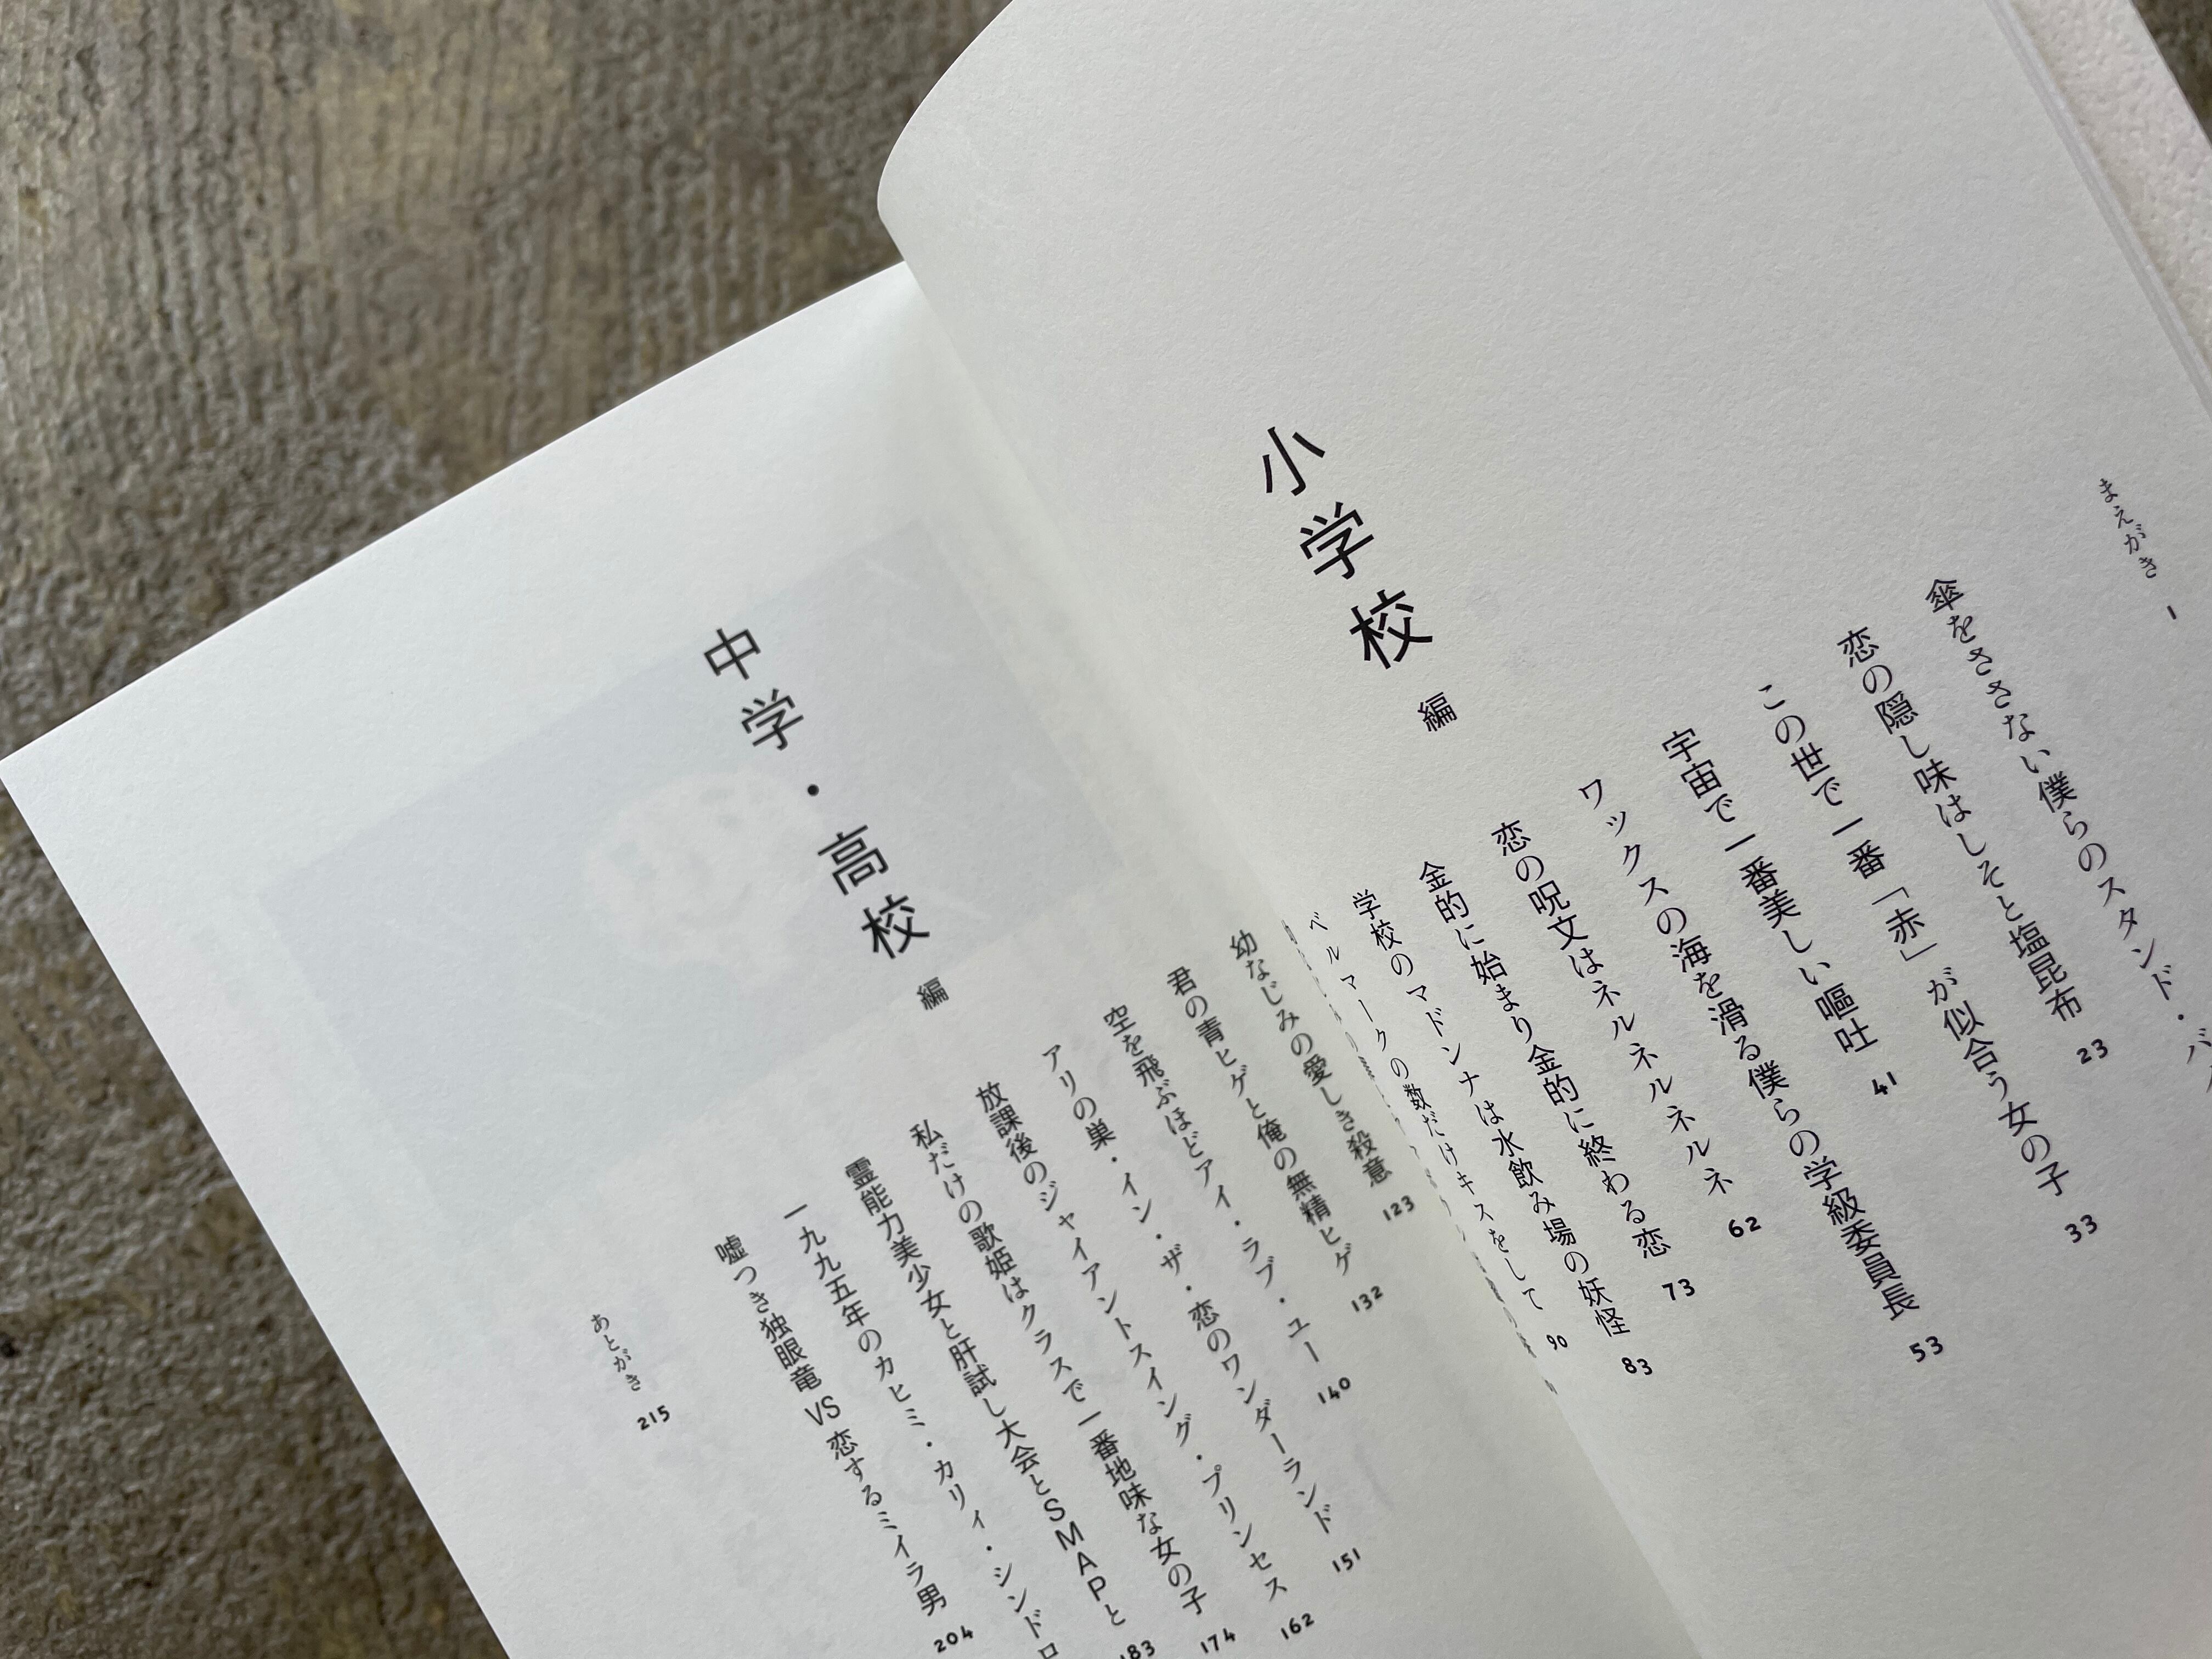 まえがき 1
小学校 編
傘をささない僕らのスタンド・バ
恋の隠し味はしそと塩昆布 23
この世で一番「赤」が似合う女の子 33
宇宙で一番美しい嘔吐 41
ワックスの海を滑る僕らの学級委員長 53
恋の呪文はネルネルネルネルネ 62
金的に始まり金的に終わる恋 73
学校のマドンナは水飲み場の妖怪 83
ベルマークの数だけキスをして 90
中学・高校 編
幼なじみの愛しき殺意 123
君の青ヒゲと俺の無精ヒゲ 132
空を飛ぶほどアイ・ラブ・ユー 140
アリの巣・イン・ザ・恋のワンダーランド 151
放課後のジャイアントスイング・プリンセス 162
私だけの歌姫はクラスで一番地味な女の子 174
霊能力美少女と肝試し大会とSMAPと 183
一九九五年のカヒミ・カリィ・シンドロ
嘘つき独眼竜VS恋するミイラ男 204
あとがき 215